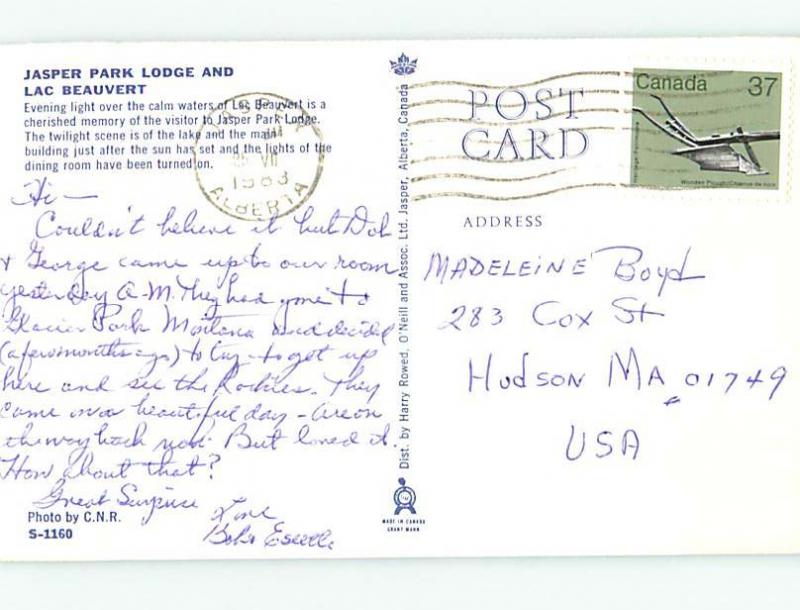 JASPER PARK LODGE AND
LAC BEAUVERT
Evening light over the calm waters of Lac Beauvert is a
cherished memory of the visitor to Jasper Park Lodge.
The twilight scene is of the lake and the main
building just after the sun has set and the lights of the
dining room have been turned on.
Hi —
Couldn't believe it but Dot
& George came up to our room
yesterday A.M. They had gone to
Glacier Park Montana and decided
(a few months ago) to try - to get up
here and see the Rockies. They
came on a beautiful day - are on
the way back now. But loved it.
How about that?
Great Surprise
Love
Bob &
Photo by C.N.R.
S-1160
Dist. by Harry Rowed, O'Neill and Assoc. Ltd. Jasper, Alberta, Canada
MADE IN CANADA
GRANT MANN
VII
1983
ALBERTA
POST
CARD
Canada 37
Wooden Plough/Charrue de bois
ADDRESS
MADELEINE Boyd
283 Cox St
Hudson MA 01749
USA